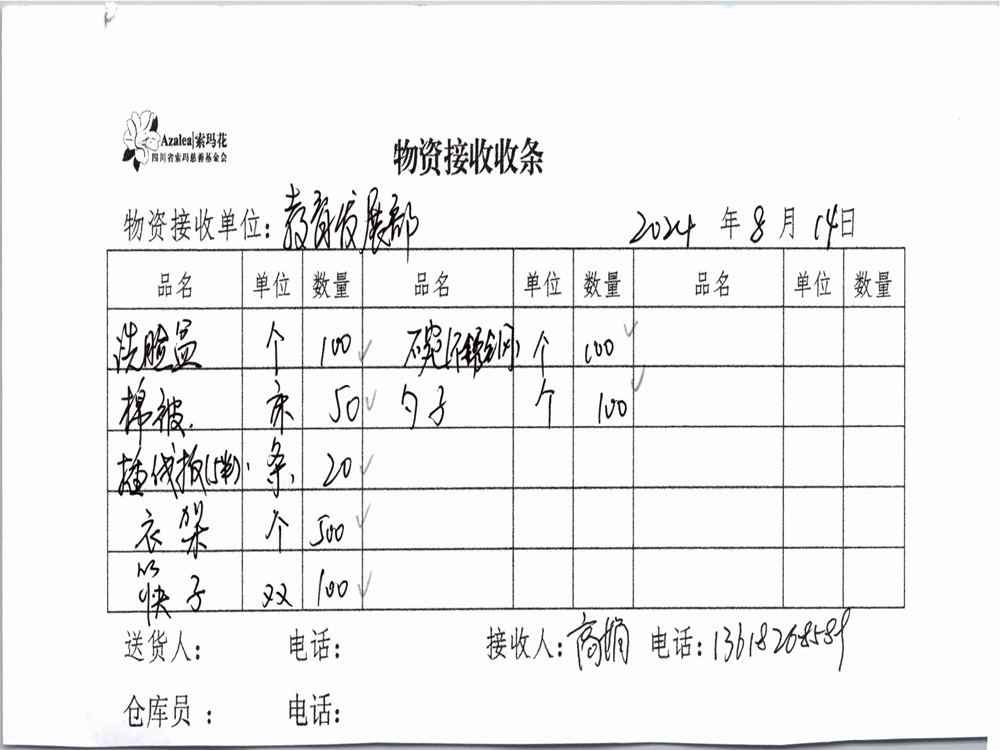 Azalea|索玛花
四川省索玛慈善基金会
物资接收收条
物资接收单位：教育发展部 2024 年 8 月 14日
品名 单位 数量 品名 单位 数量 品名 单位 数量
洗脸盆 个 100 碗(不锈钢) 个 100
棉被 床 50 勺子 个 100
(5米) 条 20
衣架 个 500
筷子 双 100
送货人： 电话： 接收人：高娟 电话：13618268589
仓库员 ： 电话：